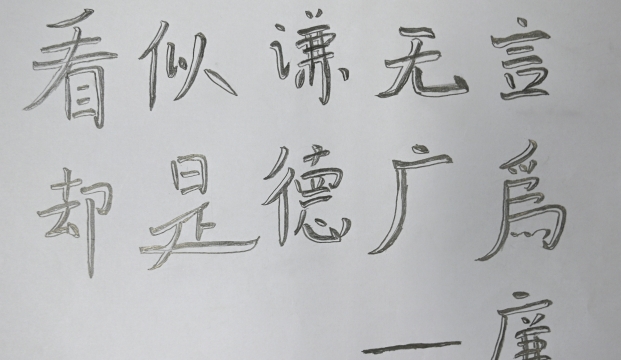 看似谦无言
却是德广為
一廉